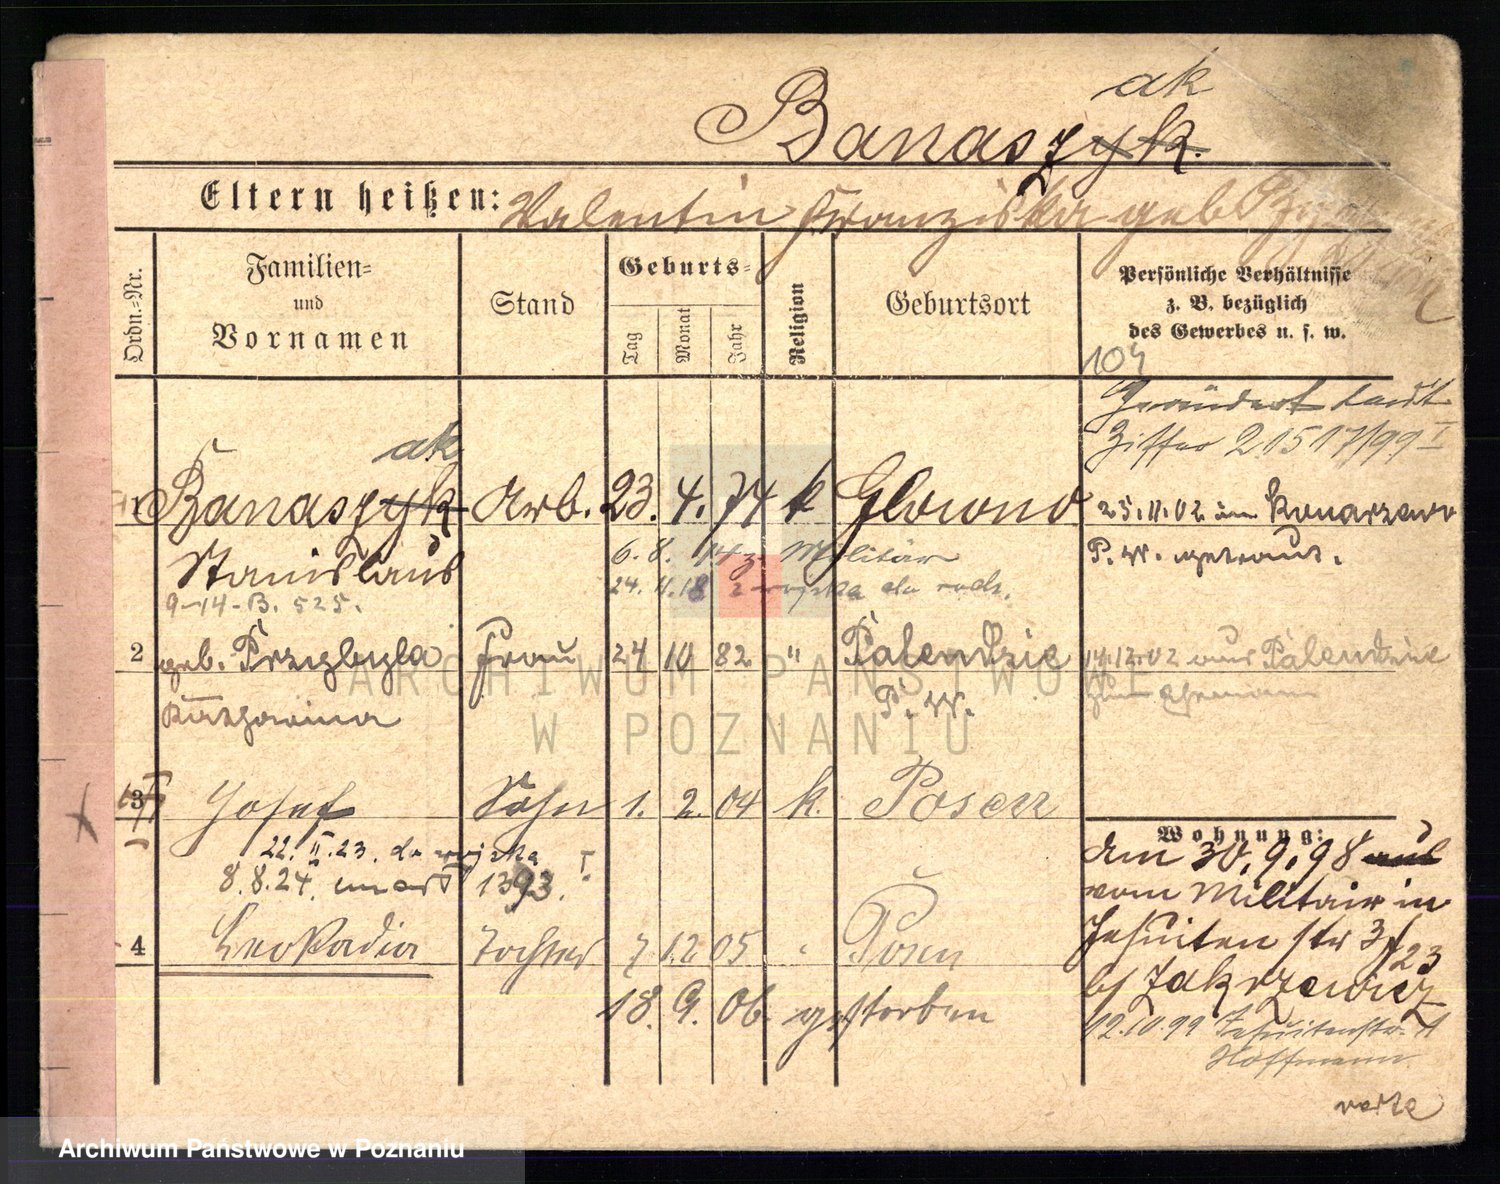 ak
Banaszyk.
Eltern heißen: Valentin Franziska geb
Ordn.=Nr.
Familien=
und
Vornamen
Stand
Geburts=
Tag
Monat
Jahr
Religion
Geburtsort
Persönliche Verhältnisse
z. B. bezüglich
des Gewerbes u. s. w.
104
Geändert laut
Ziffer 2 1517/99 I
ak
1 Banaszyk Arb. 23. 4. 74 k Glowno
25.11.02 in Konarzewo
Stanislaus
6. 8. 14 z. Militär
P. W. getraut.
9-14-B. 525.
24. 11. 18 z wojska
2 geb. Przybyla Frau 24 10 82 " Palendzie
14.12.02 aus Palendzie
Katharina
P. W.
zum Ehemann
3 Josef Sohn 1. 2. 04 k. Posen
22. II. 23. do wojska
8. 8. 24. 1393. I.
4 Leokadia Tochter 7 12 05 Posen
18. 9. 06 gestorben
Wohnung:
Am 30.9.98 aus
vom Militair in
Jesuiten str 3/23
b/ Zakrzewicz
12.10.99 Jesuitenstr. 11
Hoffmann
verte
ARCHIWUM PAŃSTWOWE
W POZNANIU
Archiwum Państwowe w Poznaniu